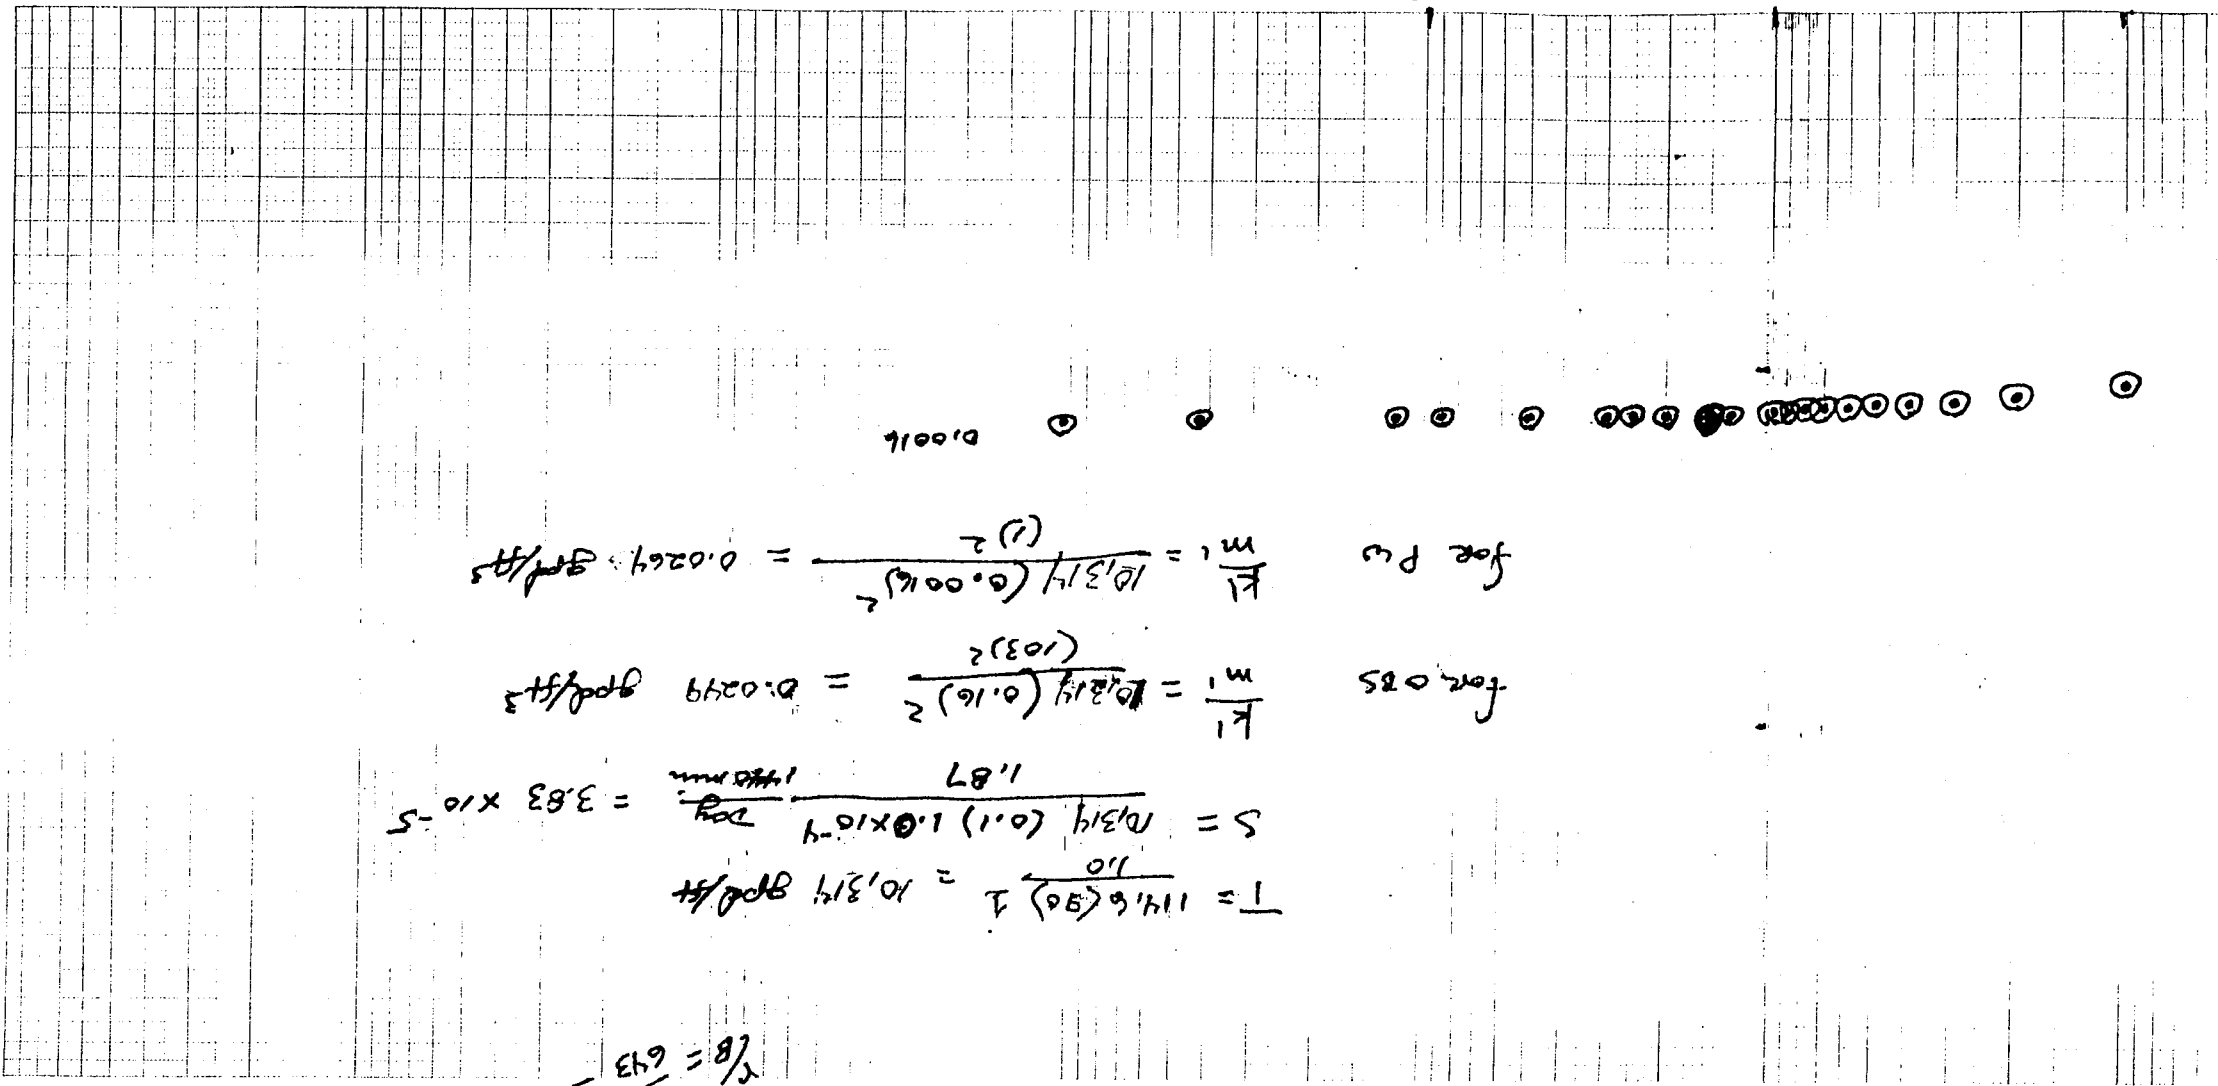 r/B = 643
T = 114.6 (90) 1 / 1.0 = 10,314 gpd/ft
S = 10,314 (0.1) 1.0 x 10-4 / 1.87 Day / 1440 min = 3.83 x 10-5
for OBS K'/m' = 10,314 (0.16)2 / (103)2 = 0.0249 gpd/ft3
for PW K'/m' = 10,314 (0.0016)2 / (1)2 = 0.0264 gpd/ft3
0.0016